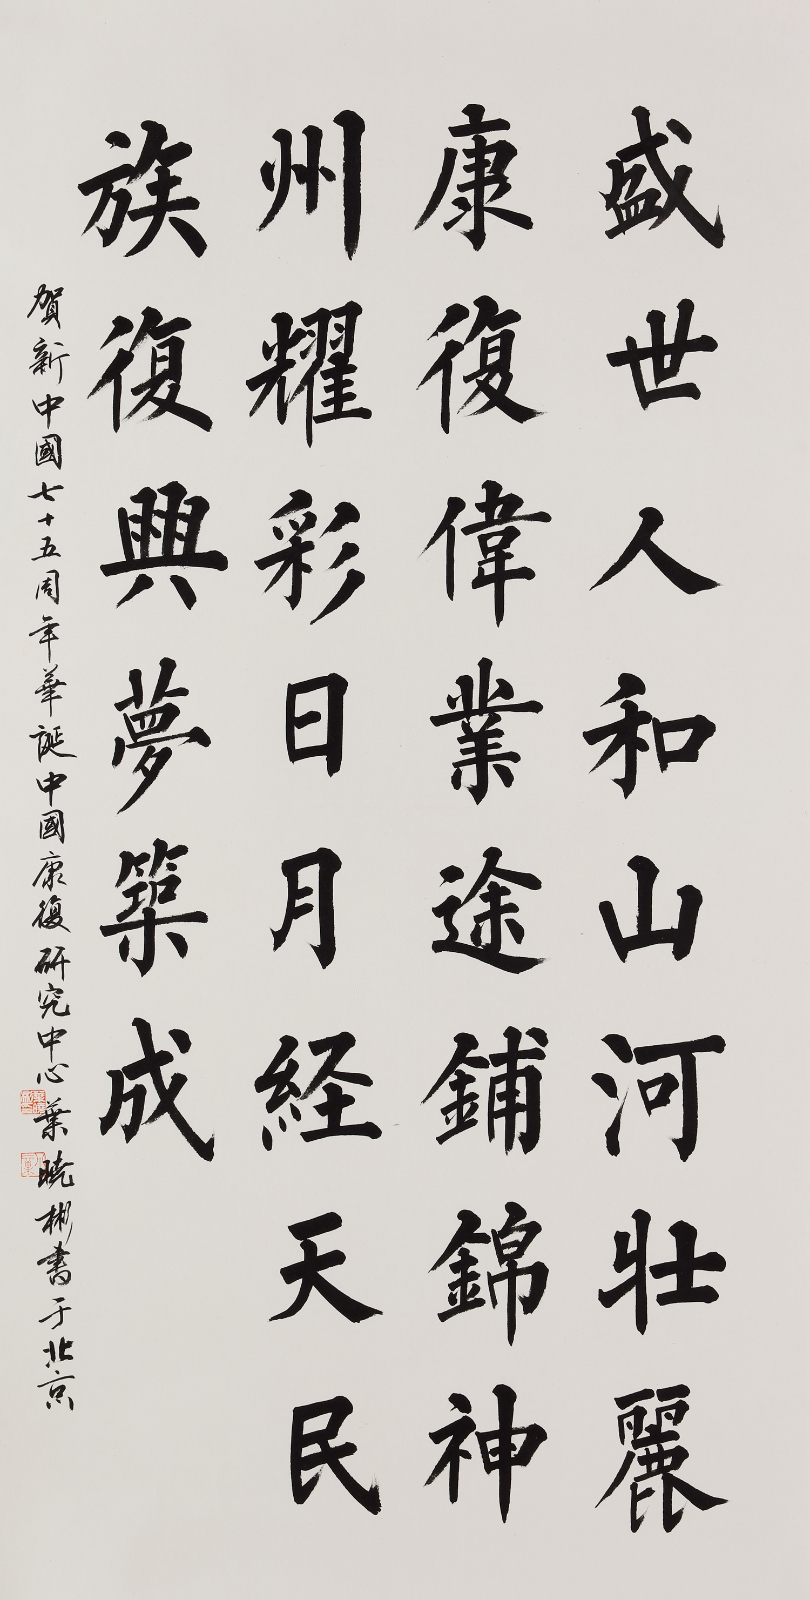 盛世人和山河壮麗
康復偉業途鋪錦神
州耀彩日月経天民
族復興夢築成
贺新中國七十五周年華诞中國康復研究中心葉晓彬书于北京